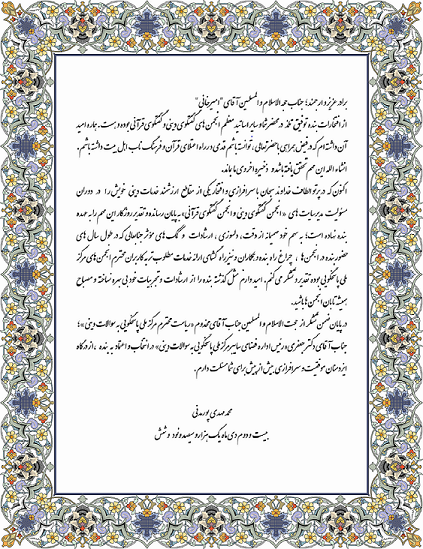 برادر عزیز و ارجمند؛ جناب حجه الاسلام و المسلمین آقای "امیرخانی"
از افتخارات بنده توفیق تلمذ در محضر شما و سایر اساتید معظم انجمن های گفتگوی دینی و گفتگوی قرآنی بوده و هست. همواره امید
آن داشته ام که در فیض همراهی با حضرتعالی، توانسته باشم قدمی در راه اعتلای قرآن و فرهنگ ناب اهل بیت داشته باشم.
انشاء الله این مهم تحقق یافته باشد و ذخیره اخروی ما باشد.
اکنون که در پرتو الطاف خداوند سبحان با سرافرازی و افتخار یکی از مقاطع ارزشمند خدمات دینی خویش را در دوران
مسئولیت مدیر سایت های «انجمن گفتگوی دینی و انجمن گفتگوی قرآنی» به پایان رسانده و تقدیر روزگار این مهم را به عهده
بنده نهاده است؛ به سهم خود صمیمانه از وقت، دلسوزی، ارشادات و کمک های مؤثر جنابعالی که در طول سال های
حضور بنده در انجمن ها، چراغ راه بنده و همکاران و نیز راه گشای ارائه خدمات مطلوب تر به کاربران محترم انجمن های مرکز
ملی پاسخگویی بوده تقدیر و تشکر می کنم. امید دارم مثل گذشته بنده را از ارشادات و تجربیات خود بی بهره نساخته و مصباح
همیشه تابان انجمن ها باشید.
در پایان ضمن تشکر از حجت الاسلام و المسلمین جناب آقای مخدوم «ریاست محترم مرکز ملی پاسخگویی به سوالات دینی» و
جناب آقای دکتر جعفری «رئیس اداره فضای سایبر مرکز ملی پاسخگویی به سوالات دینی» در انتخاب و اعتماد به بنده، از درگاه
ایزد منان موفقیت و سرافرازی بیش از پیش برای شما مسئلت دارم.
محمد مهدی پورمدنی
بیست و دوم دی ماه یک هزار و سیصد و نود و شش